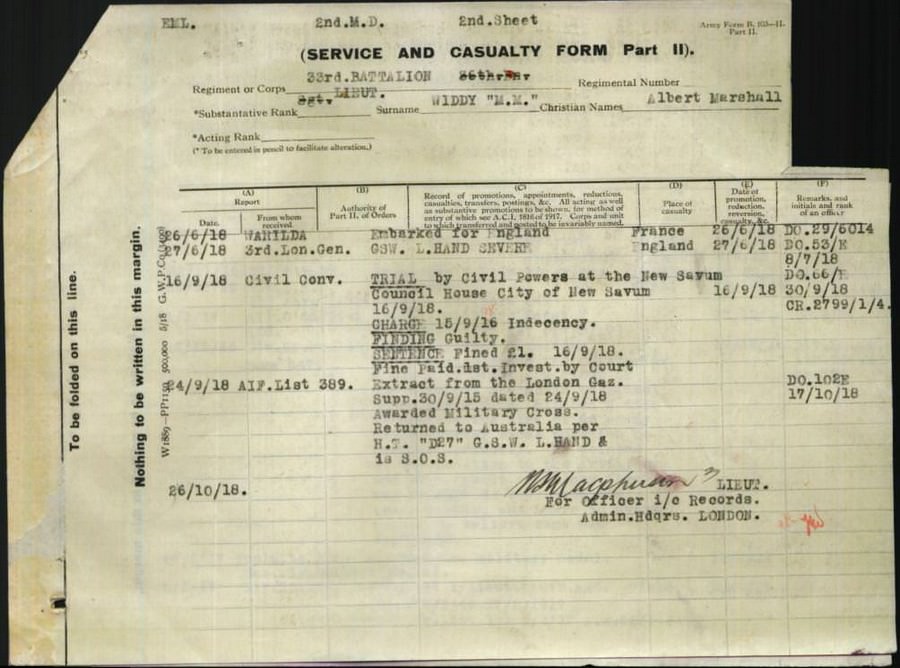 EML. 2nd.M.D. 2nd.Sheet
Army Form B. 103—II.
Part II.
(SERVICE AND CASUALTY FORM Part II).
33rd.BATTALION
Regiment or Corps Regimental Number
Sgt. LIEUT. WIDDY "M.M." Albert Marshall
*Substantive Rank Surname Christian Names
*Acting Rank
(* To be entered in pencil to facilitate alteration.)
To be folded on this line.
Nothing to be written in this margin.
(A) (B) (C) (D) (E) (F)
Report
Date. From whom received
Authority of Part II. of Orders
Record of promotions, appointments, reductions,
casualties, transfers, postings, &c. All acting as well
as substantive promotions to be shown, for method of
entry of which see A.C.I. 1816 of 1917. Corps and unit
to which transferred and posted to be invariably named.
Place of casualty
Date of promotion, reduction, reversion, casualty, &c.
Remarks, and initials and rank of an officer
26/6/18 WARILDA Embarked for England France 26/6/18 DO.29/6014
27/6/18 3rd.Lon.Gen. GSW. L.HAND SEVERE England 27/6/18 DO.53/E
8/7/18
16/9/18 Civil Conv. TRIAL by Civil Powers at the New Savum DO.66/E
Council House City of New Savum 16/9/18 30/9/18
16/9/18. CR.2799/1/4.
CHARGE 15/9/16 Indecency.
FINDING Guilty.
SENTENCE Fined £1. 16/9/18.
Fine Paid.dst.Invest.by Court
24/9/18 AIF.List 389. Extract from the London Gaz. DO.102E
Supp.30/9/15 dated 24/9/18 17/10/18
Awarded Military Cross.
Returned to Australia per
H.T. "D27" G.S.W. L.HAND &
is S.O.S.
26/10/18. LIEUT.
For Officer i/c Records.
Admin.Hdqrs. LONDON.